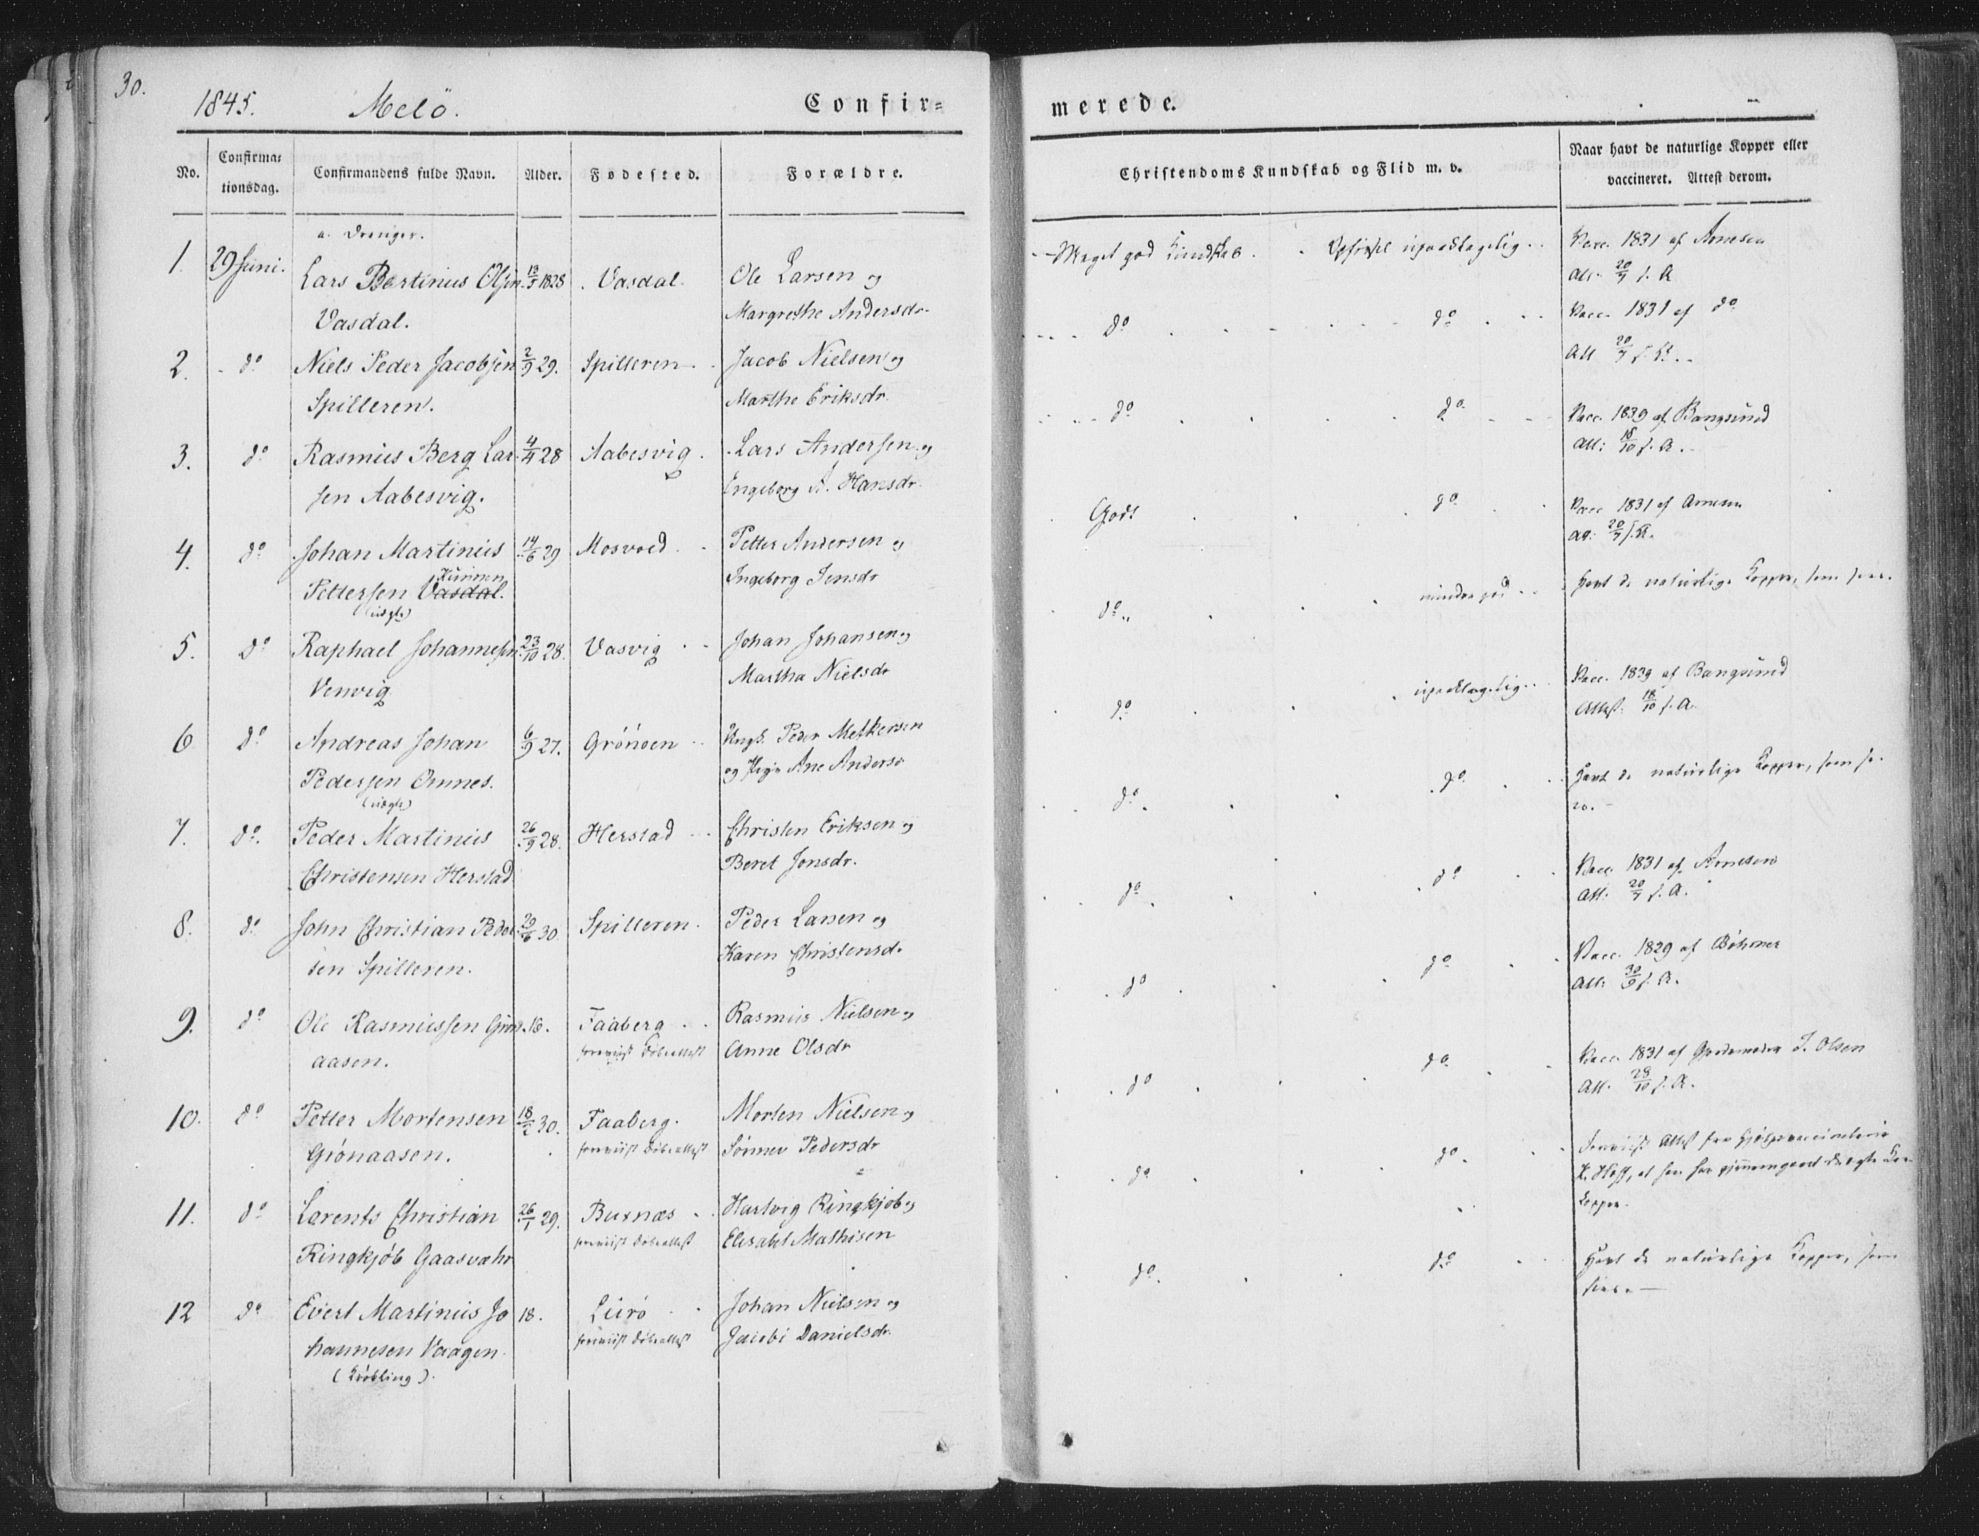 30.
1845. Melö. Confir=
merede.
No. Confirma=tionsdag. Confirmandens fulde Navn. Alder. Fødested. Forældre.
Christendoms Kundskab og Flid m. v. Naar havt de naturlige Kopper eller vaccineret. Attest derom.
a. Drenger.
1. 29 Juni. Lars Bertinus Olsen 13/3 1828 Vasdal. Ole Larsen og
Vasdal. Margrethe Andersdr.
Meget god Kundskab. Opførsel upaaklagelig. Vacc. 1831 af Arnesen
Att. 20/7 s. A.
2. do Niels Peder Jacobsen 2/9 29. Spilleren Jacob Nielsen og
Spilleren. Marthe Eriksdr.
do do Vacc. 1831 af do
Att 20/7 s. A.
3. do Rasmus Berg Lar- 4/4 28 Aabesvig. Lars Andersen og
sen Aabesvig. Engeborg A. Hansdr.
do do Vacc. 1839 af Bangsund
Att: 18/10 s. A.
4. do Johan Martinus 14/6 29 Mosvoed Petter Andersen og
Pettersen Vasdal. Ingeborg Jensdr
(uægte)
Godt do Vacc 1831 af Arnesen
Att: 20/7 s. A.
5. do Raphael Johannesen 23/10 28. Vasvig Johan Johansen og
Venvig Martha Nielsdr
do mindre god Havt de naturlige Kopper, som
6 do Andreas Johan 6/9 27. Grönöen Ungk. Peder Metkersen
Pedersen Omnes. og Pige Ane Andersd
(uægte)
do upaaklagelig Vacc. 1839 af Bangsund
Attest. 18/10 s. A.
7. do. Peder Martinus 26/9 28. Herstad Christen Eriksen og
Christensen Herstad Beret Jonsdr.
do. do. Havt de naturlige Kopper, som
8. do John Christian Peder 29/6 30. Spilleren. Peder Larsen og
sen Spilleren. Karen Christensd.
do. do Vacc. 1831 af Arnesen
Att. 20/7 s. A.
9. do Ole Rasmussen Grön 16. Faaberg Rasmus Nielsen og
aasen. foreviist Døbeattest Anne Olsdr
do do Vacc. 1829 af Bøhmer
Att. 30/6 s. A.
10. do Petter Mortensen 18/2 30. Faaberg. Morten Nielsen og
Grönaasen. foreviist Døbeattest Pedersdr
do do Vacc. 1831 af J. Olsen
Att. 28/10 s. A.
11. do Lorents Christian 26/1 29. Buxnæs Hartvig Ringkjöb og
Ringkjöb Gaasvær foreviist Døbeattest Elisabet Mathisen
do do. Foreviist Attest fra
Hoff, at han har gjennemgaaet de ægte
Kopper.
12 do Evert Martinus Jo 18. Lurö Johan Nielsen og
hannesen Vaagen. foreviist Døbeattest Jacobi Danielsdr.
(Krøbling).
do. do Havt de naturlige Kopper, som
sees.